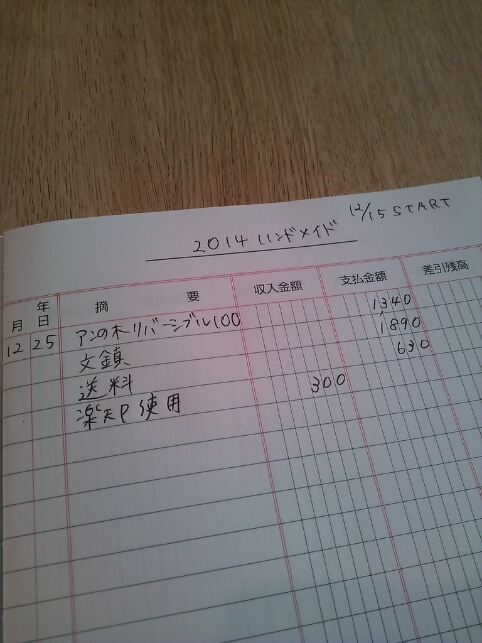 12/15 START
2014 ハンドメイド
年 月 日 摘要 収入金額 支払金額 差引残高
12 25 アンの木リバーシブル100 1340
文鎮 1890
送料 630
楽天P使用 300